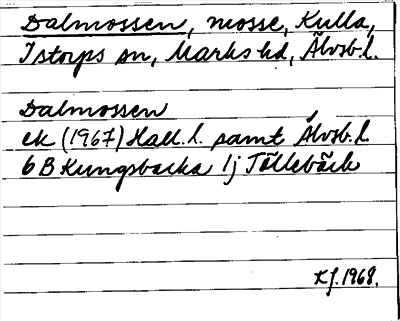 Dalmossen, mosse, Kulla,
Istorps sn, Marks hd, Älvsb. l.
Dalmossen
ek (1967) Hall. l. samt Älvsb. l.
6 B Kungsbacka 1j Töllebäck
KJ. 1968.